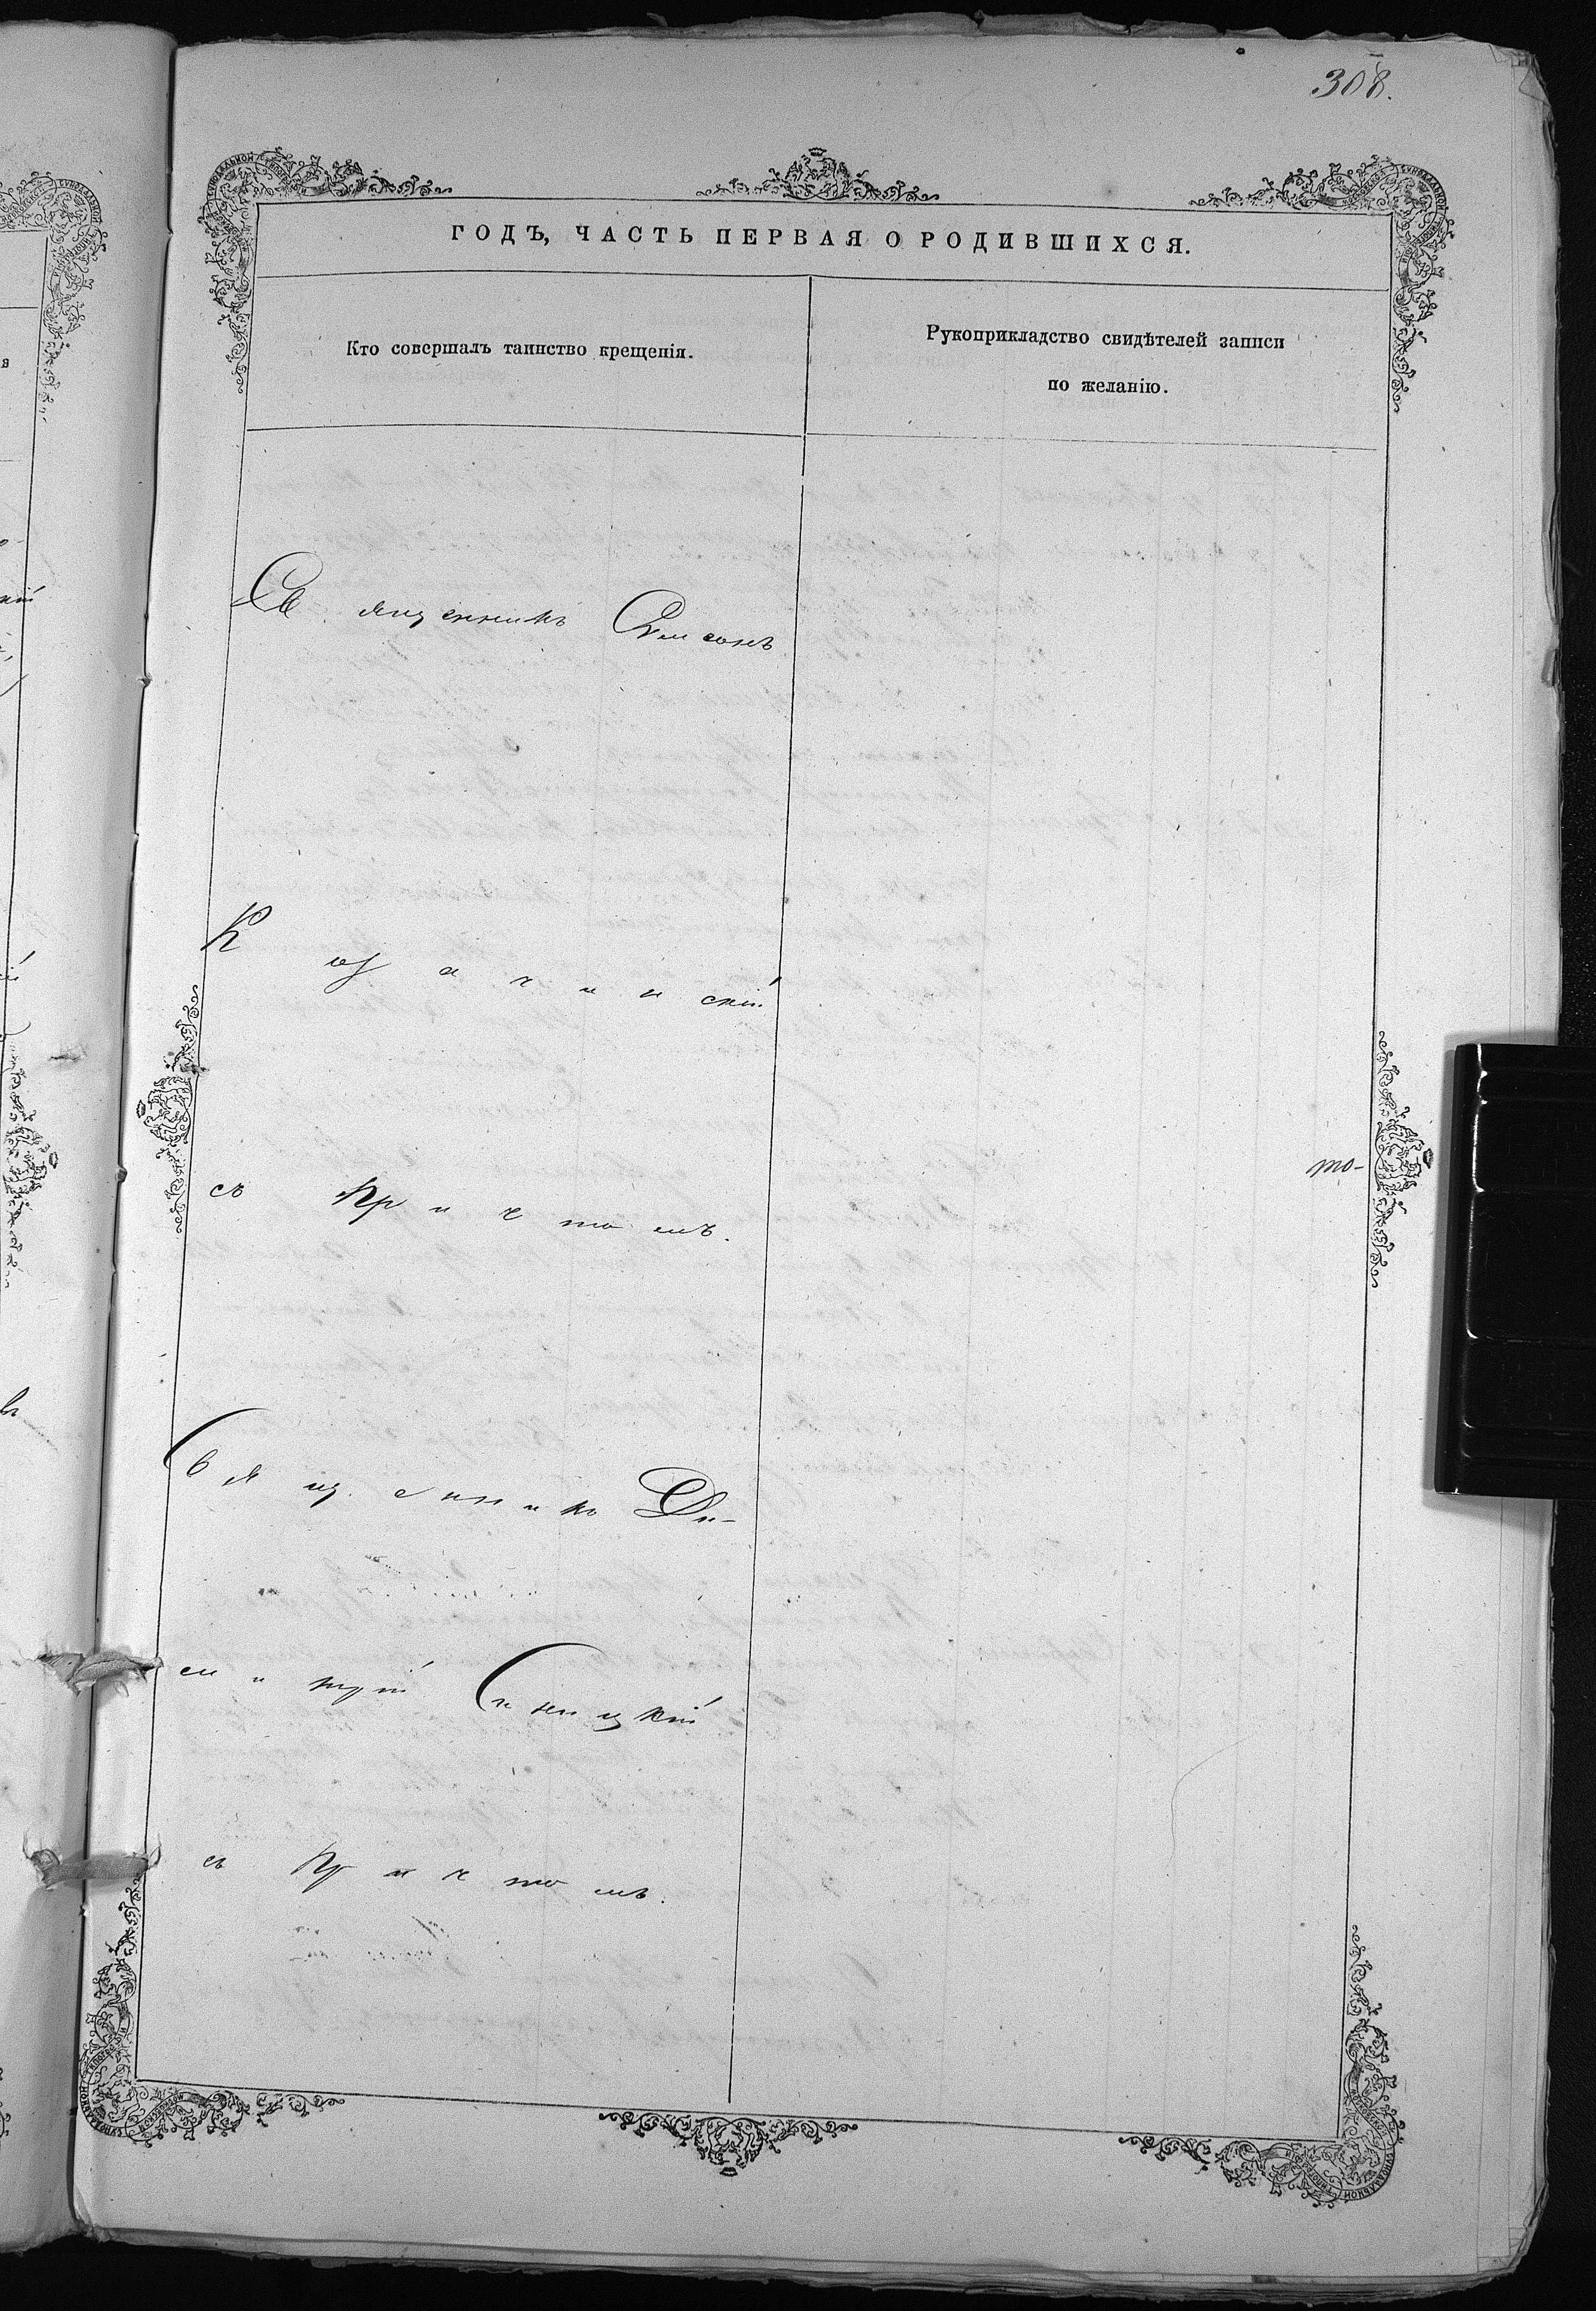 308.
ГОДЪ, ЧАСТЬ ПЕРВАЯ О РОДИВШИХСЯ.
Кто совершалъ таинство крещенія.
Рукоприкладство свидѣтелей записи
по желанію.
Священникъ Симеонъ
К
скій
съ Причтомъ.
то-
Священикъ Ди-
митрій Синицкій
съ Причтомъ.